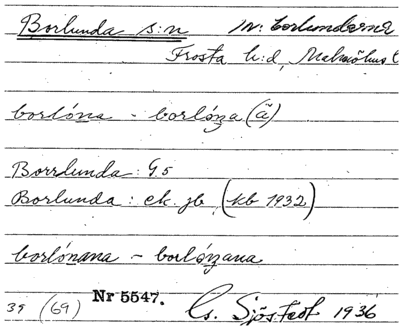 Borlunda s:n  In: borlundarna
Frosta h:d, Malmöhus l
borlóna - borlóza (ä)
Borrlunda: G5
Borlunda: ek. jb (kb 1932)
borlónana - borlózana
39 (69) Nr 5547. Cs. Sjöstedt 1936